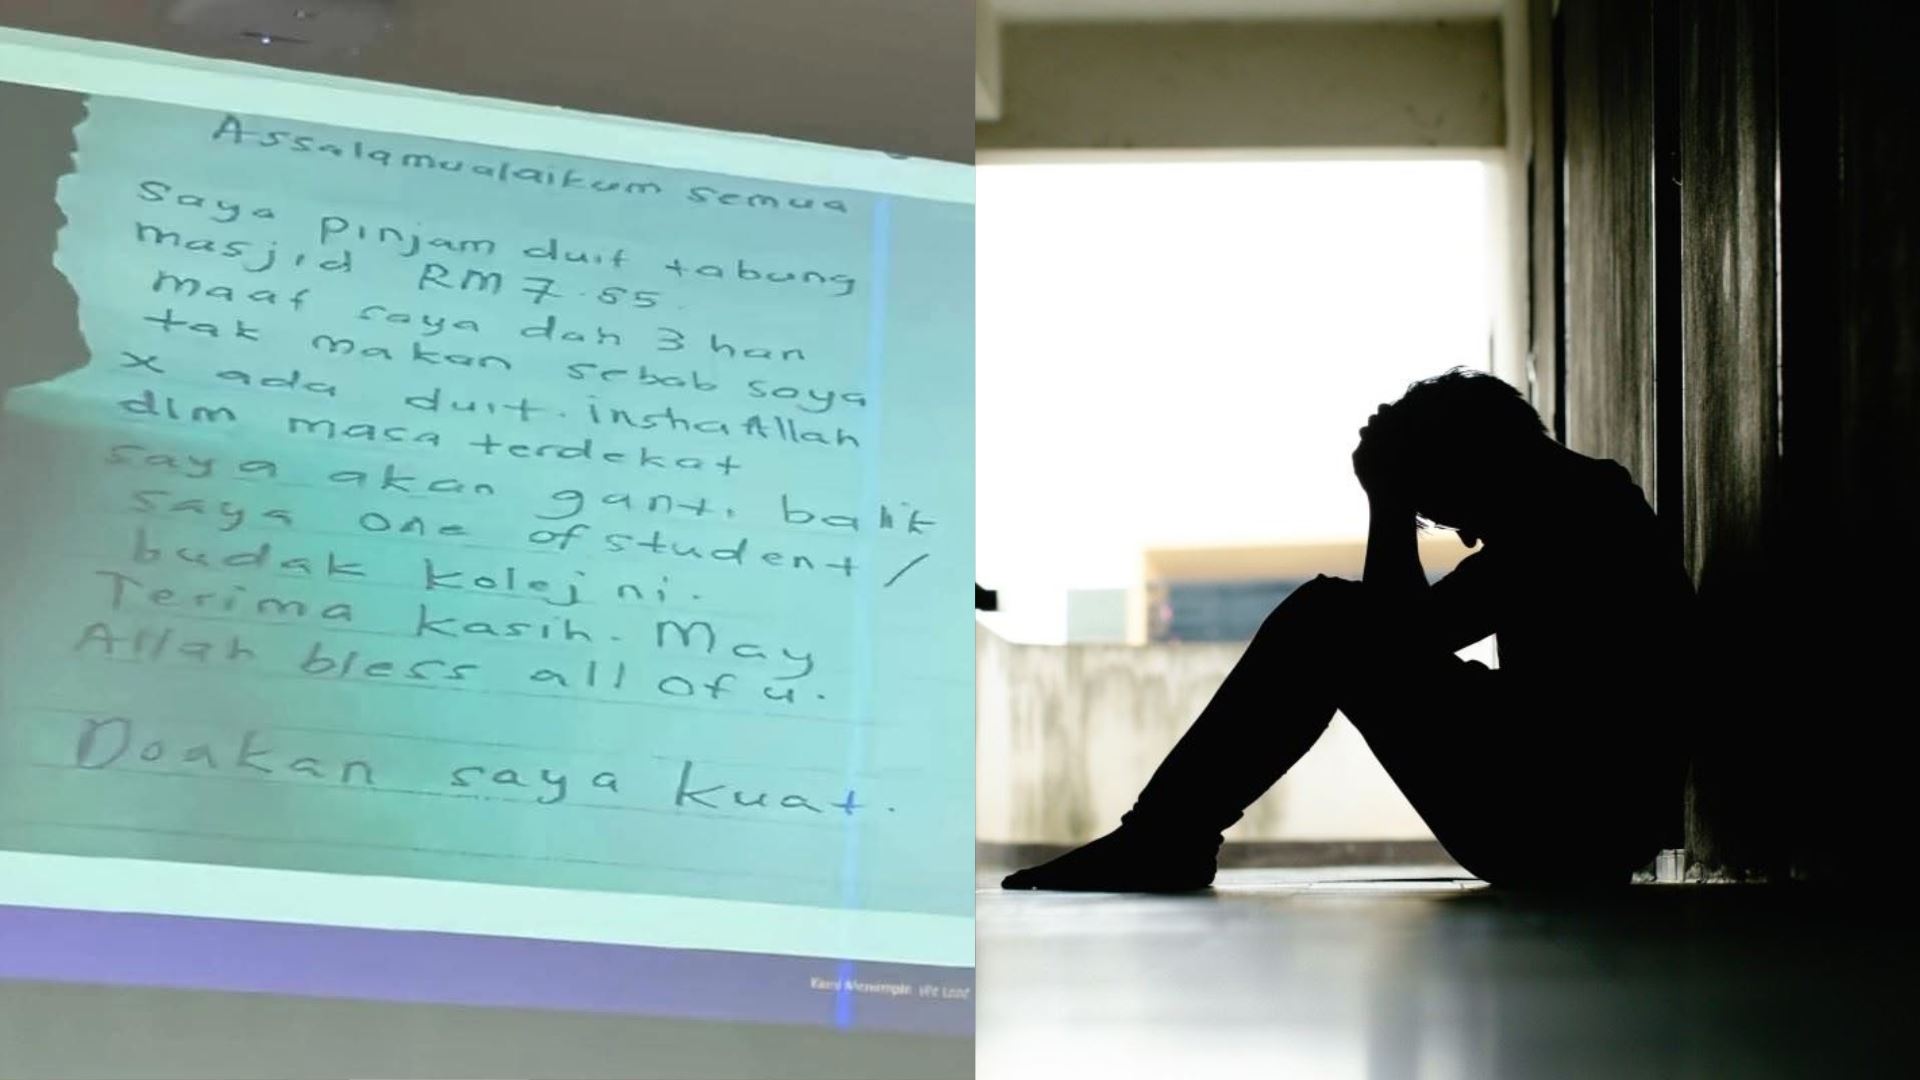 Assalamualaikum semua
Saya pinjam duit tabung
masjid RM 7.55.
maaf saya dah 3 hari
tak makan sebab saya
x ada duit. inshaAllah
dlm masa terdekat
saya akan ganti balik
saya one of student /
budak kolej ni.
Terima kasih. May
Allah bless all of u.
Doakan saya kuat.
Kami Memimpin We Lead